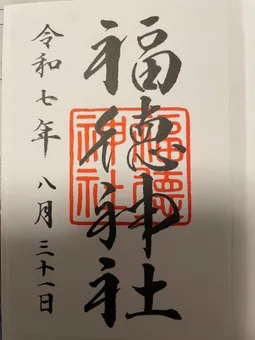 福徳神社
福徳
神社
令和七年 八月 三十一日